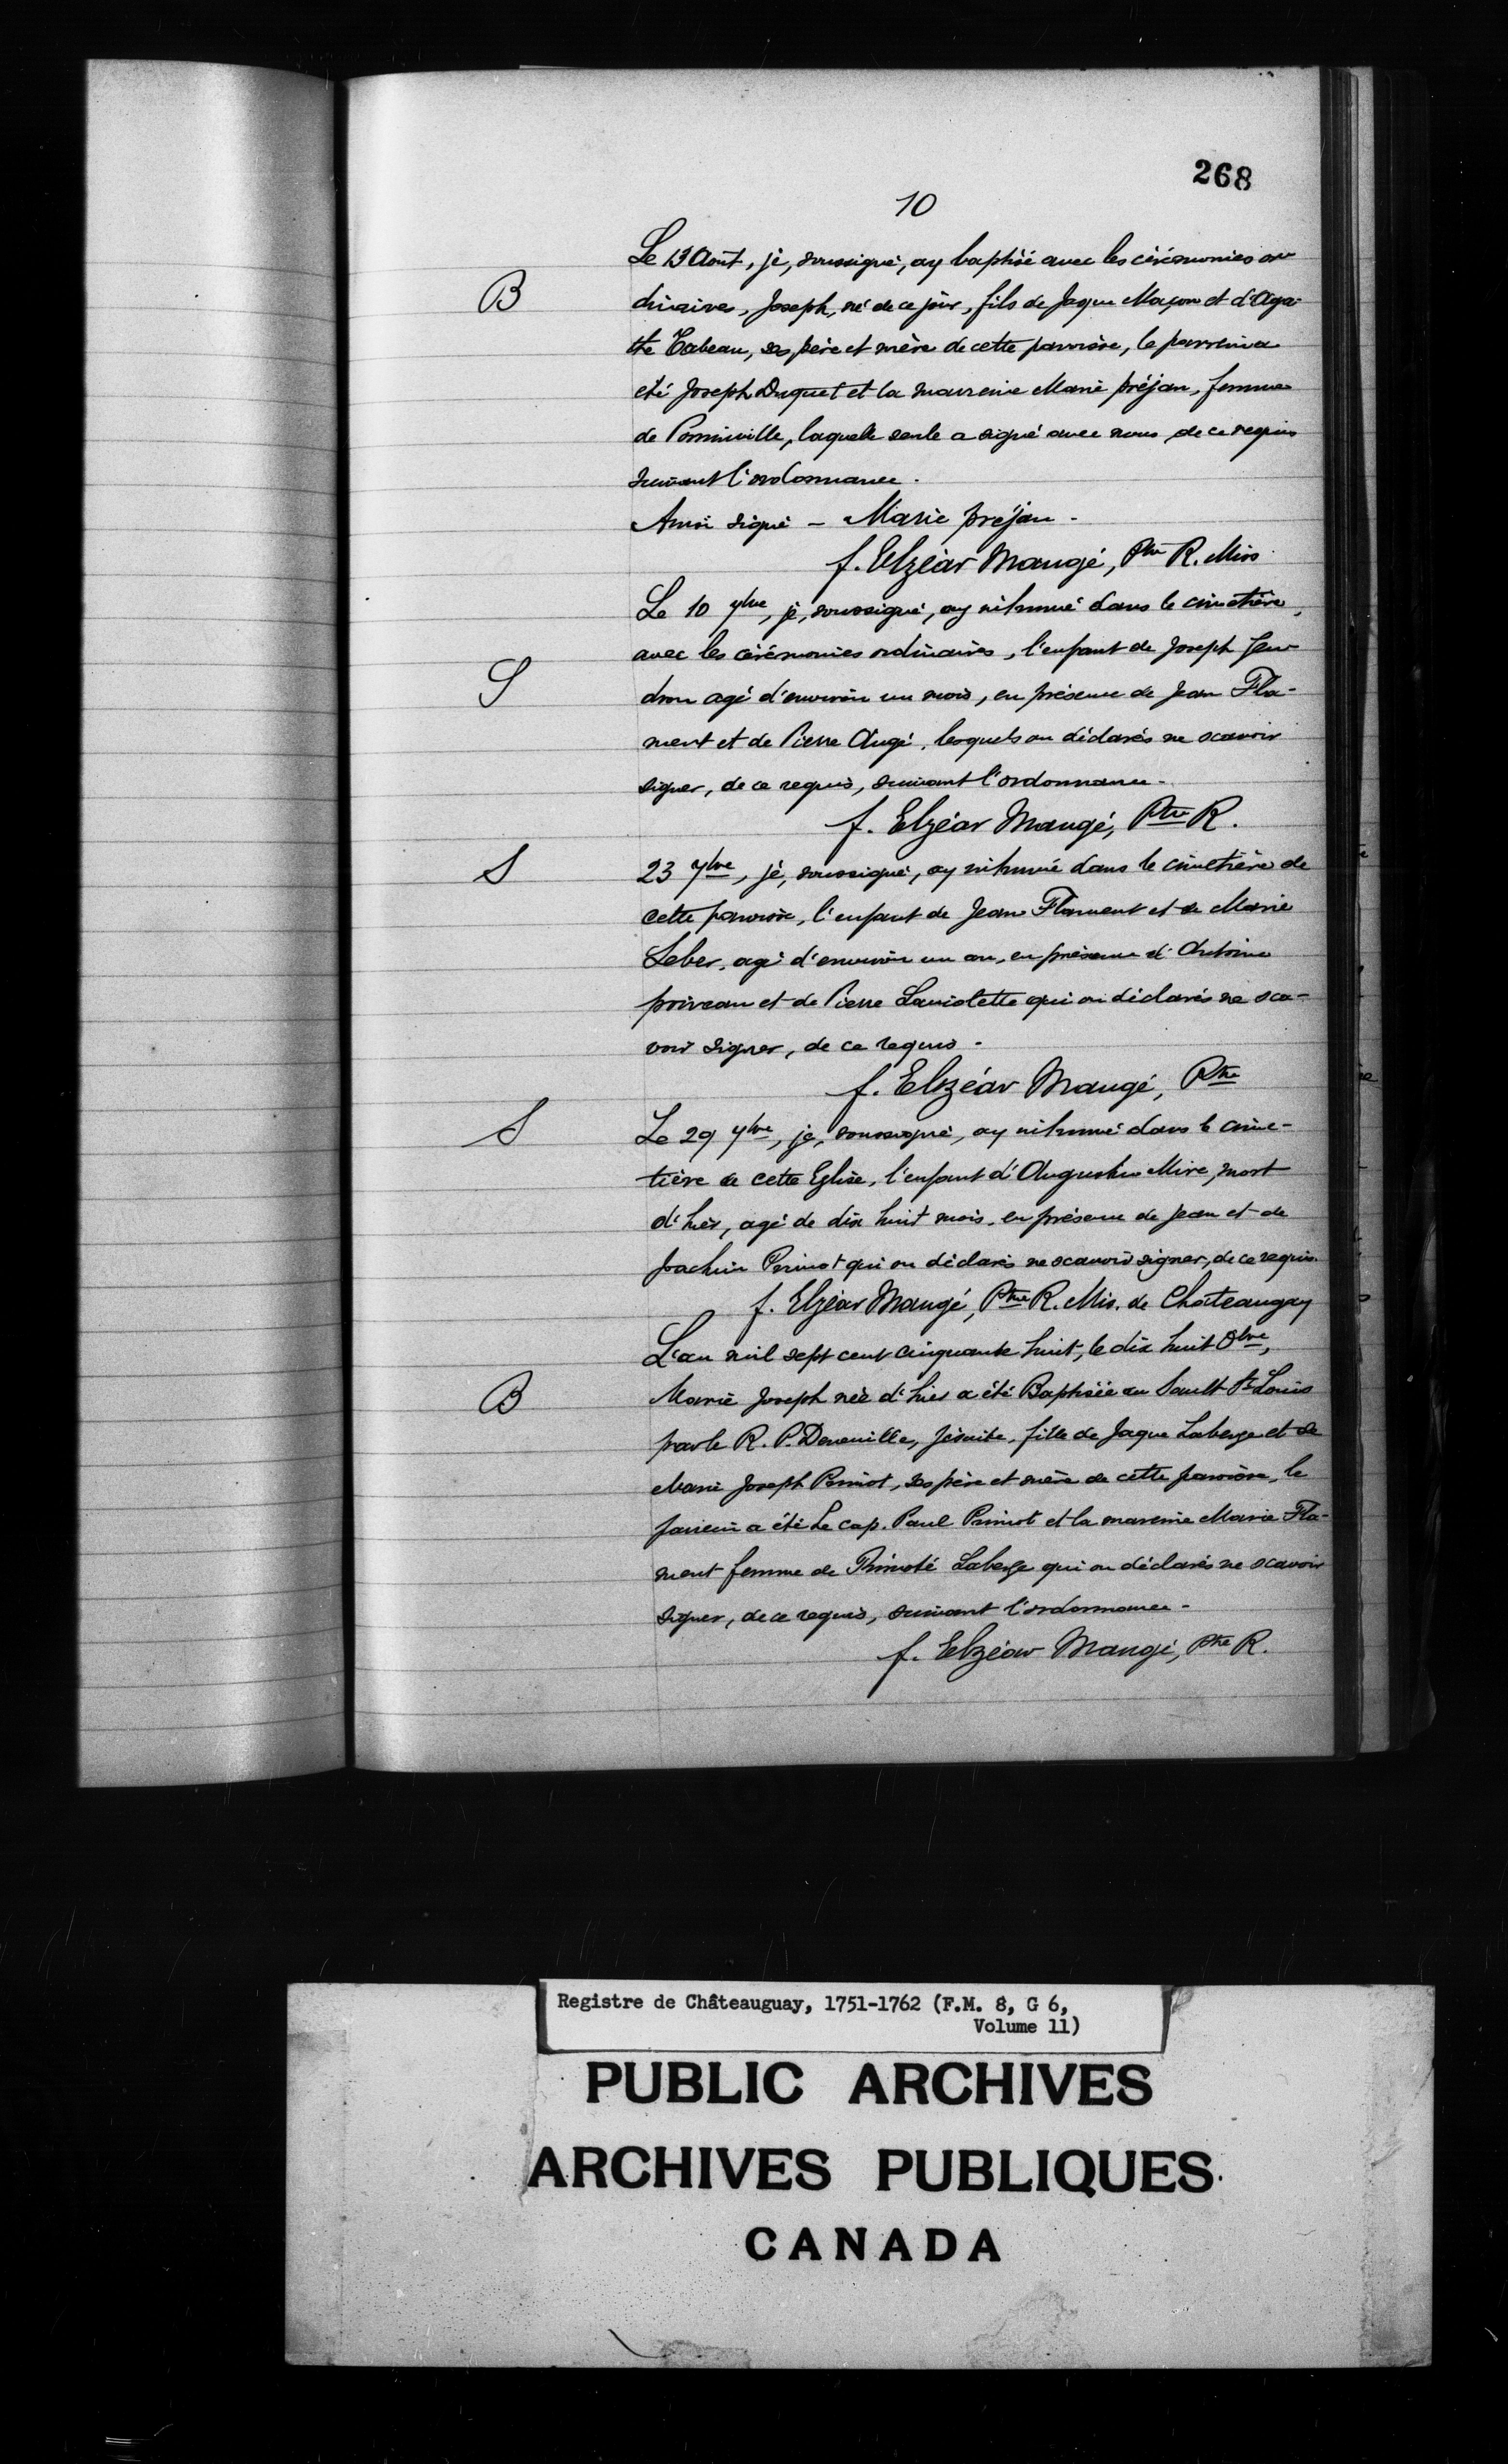 268
10
Le 13 Août, je, soussigné, ay baptisé avec les cérémonies or
B
dinaires, Joseph, né de ce jour, fils de Jaque Maçon et d'Aga-
the Tabeau, ses père et mère de cette parroisse, le parrein a
été Joseph Duquet et la marreine Marie préjan, femme
de Ponminville, laquelle seule a signé avec nous de ce requis
suivant l'ordonnance.
Ainsi signé – Marie préjan –
f. Elzéar Maugé, Ptre R. Miss
Le 10 7bre, je, soussigné, ay inhumé dans le cimetière,
avec les cérémonies ordinaires, l'enfant de Joseph Jen-
S
dron agé d'environ un mois, en présence de Jean Fla-
ment et de Pierre Augé, lesquels on déclarés ne scavoir
signer, de ce requis, suivant l'ordonnance –
f. Elzéar Maugé, Ptre R.
S
23 7bre, je, soussigné, ay inhumé dans le cimetière de
cette parroisse, l'enfant de Jean Flament et de Marie
Leber, agé d'environ un an, en présence d'Antoine
poireau et de Pierre Laviolette qui on déclarés ne sca-
voir signer, de ce requis –
f. Elzéar Maugé, Ptre
S
Le 29 7bre, je, soussigné, ay inhumé dans le cime-
tière de cette Eglise, l'enfant d'Augustin Mire, mort
d'hier, agé de dix huit mois, en présence de Jean et de
Joachin Primot qui on déclarés ne scavoir signer, de ce requis.
f. Elzéar Maugé, Ptre R. Mis. de Chateaugay
L'an mil sept cent cinquante huit, le dix huit 8bre,
B
Marie Joseph née d'hier a été Baptisée au Sault St Louis
par le R. P. Deneuille, Jésuite, fille de Jaque Laberge et de
Marie Joseph Primot, ses père et mère de cette parroisse, le
parrein a été Le cap. Paul Primot et la mareine Marie Fla-
ment femme de Timoté Laberge qui on déclarés ne scavoir
signer, de ce requis, suivant l'ordonnance –
f. Elzéar Maugé, Ptre R.
Registre de Châteauguay, 1751-1762 (F.M. 8, G 6,
Volume 11)
PUBLIC ARCHIVES
ARCHIVES PUBLIQUES
CANADA